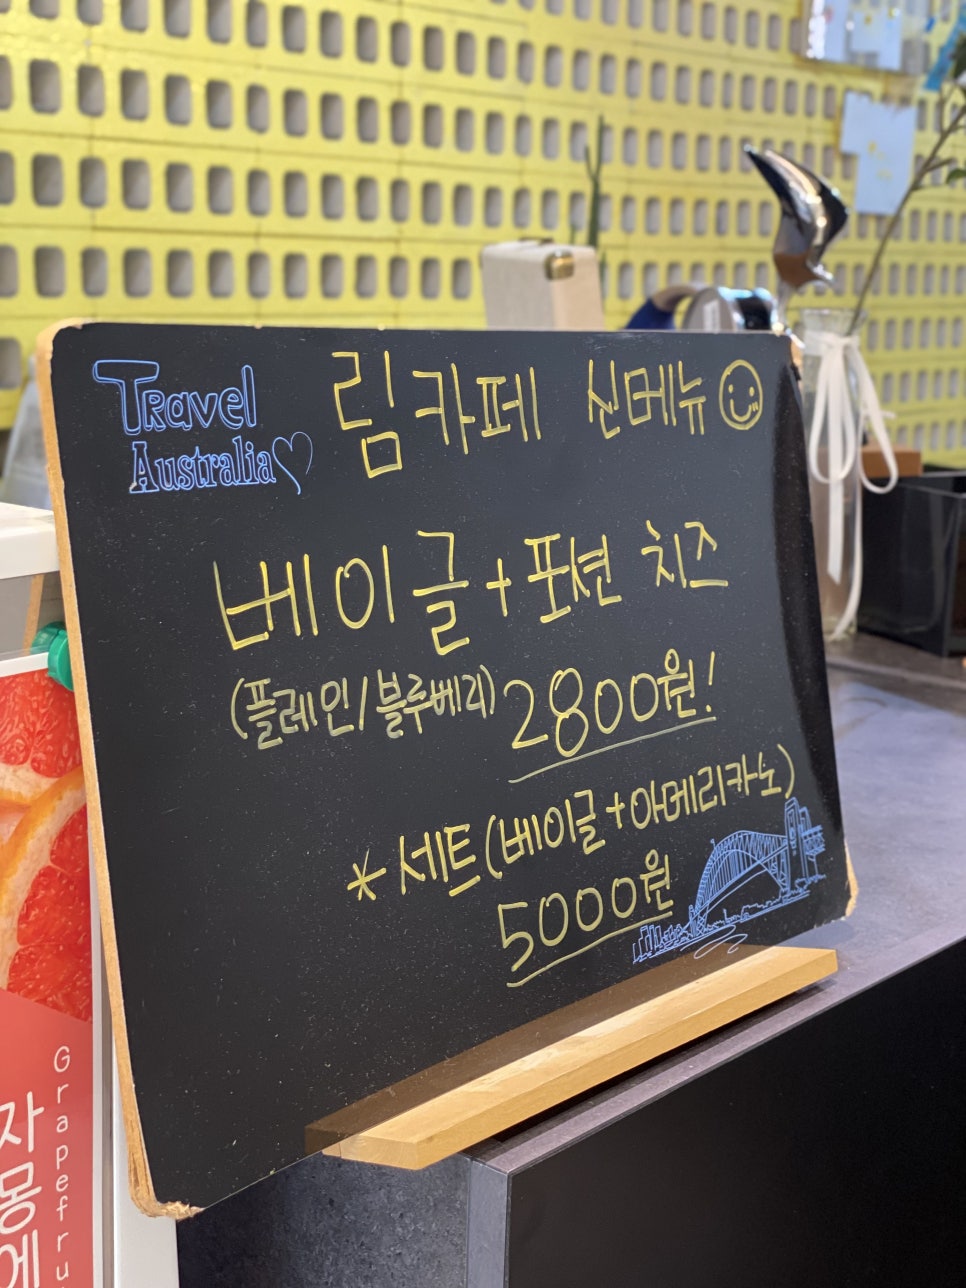 Travel
Australia
림카페 신메뉴
베이글+포션 치즈
(플레인/블루베리) 2800원!
* 세트(베이글+아메리카노)
5000원
Grapefru
자몽에